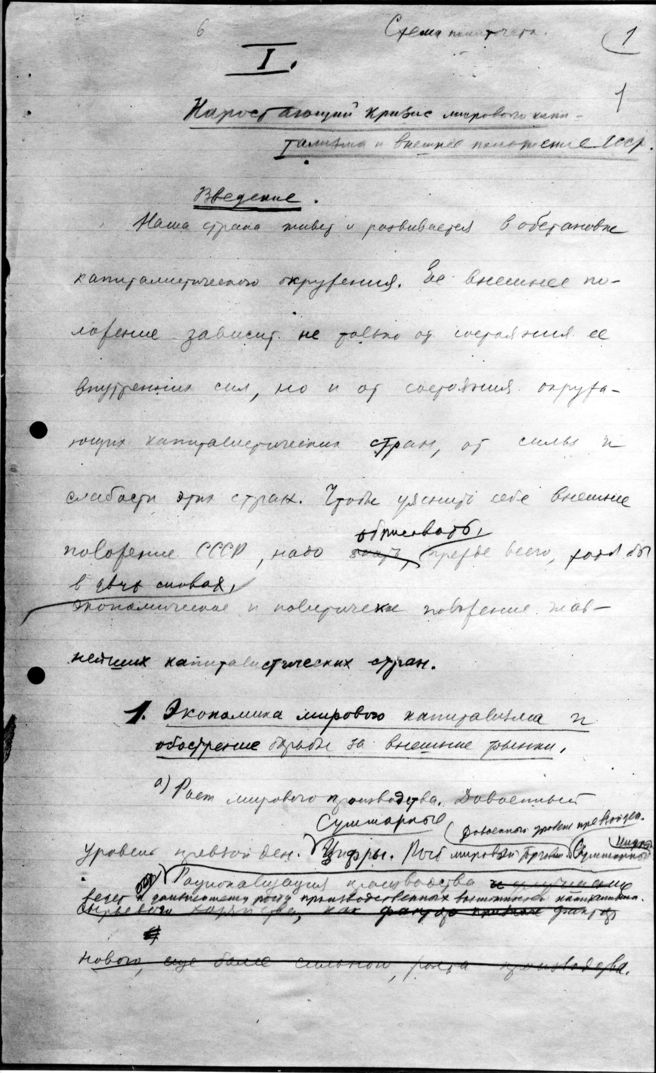 6 Схема политотчета. 1
I.
1
Наростающий кризис мирового капи-
тализма и внешнее положение СССР.
Введение.
Наша страна живет и развивается в обстановке
капиталистического окружения. Ее внешнее по-
ложение зависит не только от состояния ее
внутренних сил, но и от состояния окружа-
ющих капиталистических стран, от силы и
слабости этих стран. Чтобы уяснить себе внешнее
обрисовать,
положение СССР, надо прежде всего, хотя бы
в двух словах,
экономическое и политическое положение глав-
нейших капиталистических стран.
1. Экономика мирового капитализма и
обострение борьбы за внешние рынки.
а) Рост мирового производства. Довоенный
Суммарные довоенный уровень превзойден.
уровень превзойден. Цифры. Рост мировой торговли. Суммарные цифры
Рационализация производства
ведет к дальнейшему росту производственных возможностей капитализма.
как фактор
нового, еще более сильного, роста производства.